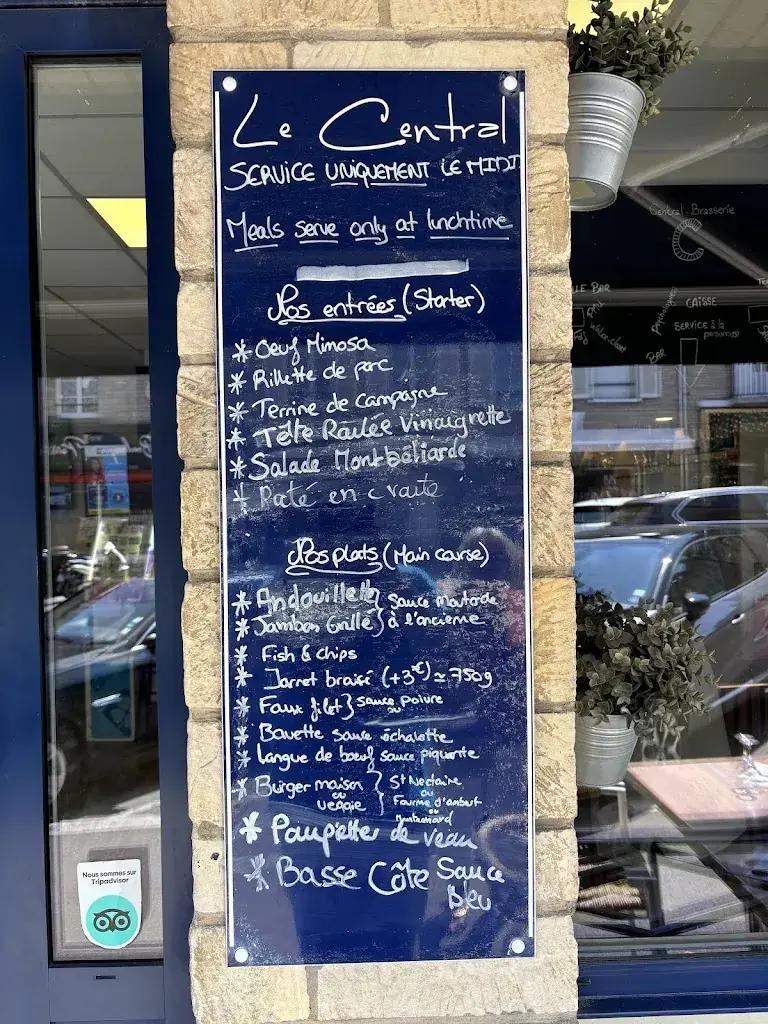 Le Central
SERVICE UNIQUEMENT LE MIDI
Meals serve only at lunchtime
Nos entrées (Starter)
* Oeuf Mimosa
* Rillette de porc
* Terrine de Campagne
* Tête Roulée Vinaigrette
* Salade Montbéliarde
* Paté en croute
Nos plats (Main course)
* Andouillette } sauce moutarde
* Jambon Grillé } à l'ancienne
* Fish & chips
* Jarret braisé (+3€) ≃ 750g
* Faux filet } sauce Poivre
* Bavette sauce échalotte
* Langue de boeuf sauce piquante
* Burger maison ou veggie } St Nectaire ou Fourme d'ambert ou
* Paupiette de veau
* Basse Côte Sauce Bleu
Nous sommes sur
Tripadvisor
Central Brasserie
C
LE BAR
CAISSE
SERVICE à la
BAR